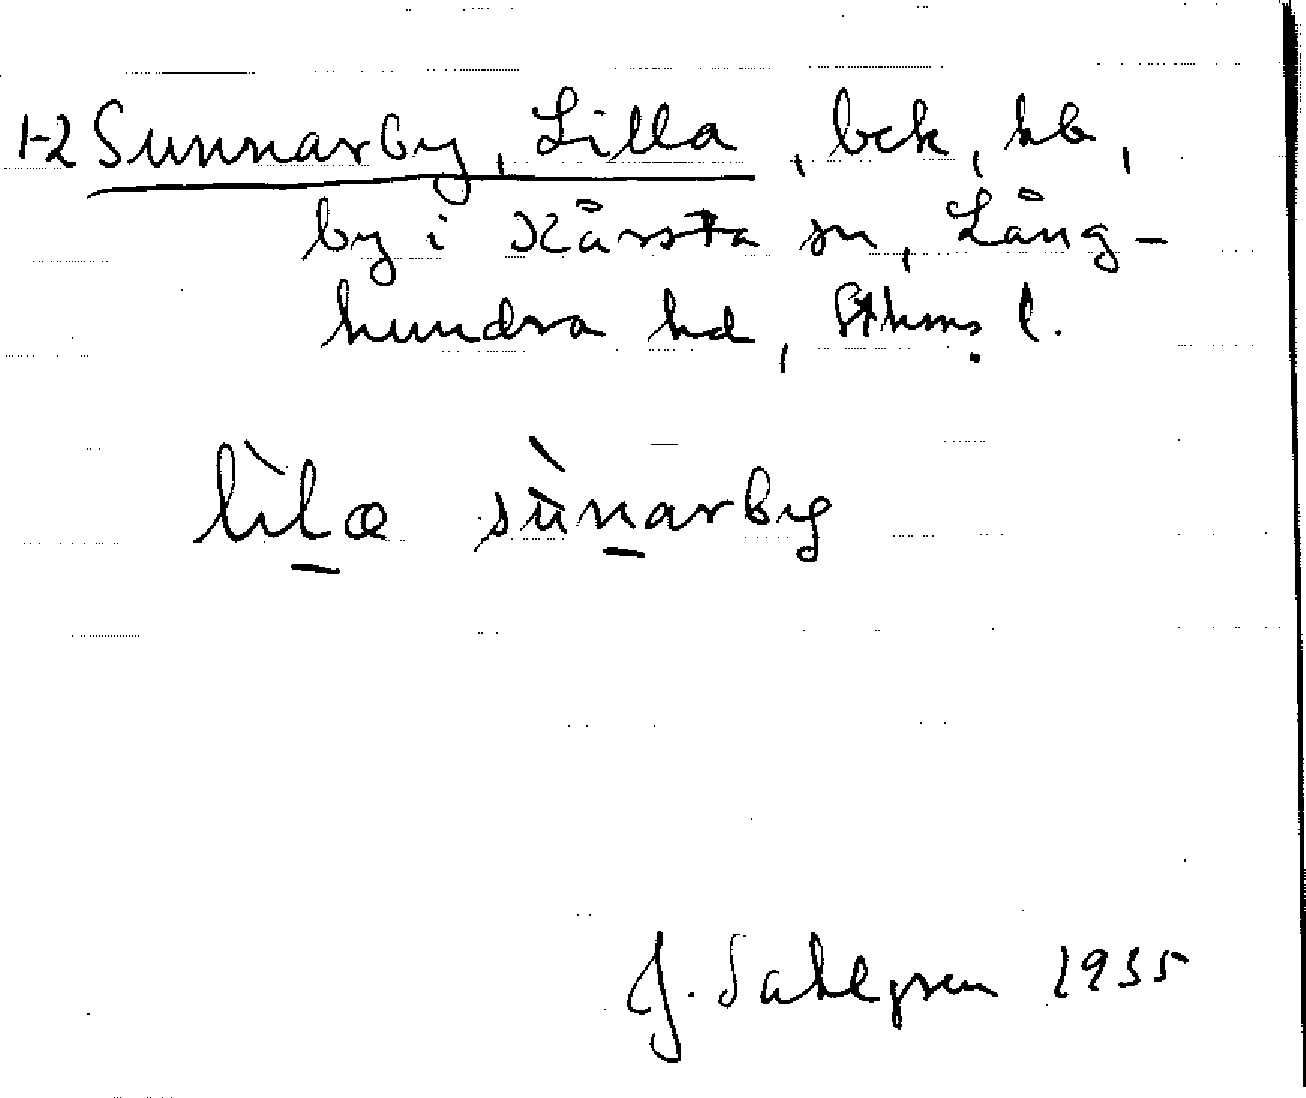 1-2 Sunnarby, Lilla, bck, hb,
by i Kårsta sn, Lång-
hundra hd, Sthms l.
lìlæ sùnarby
J. Sahlgren 1935